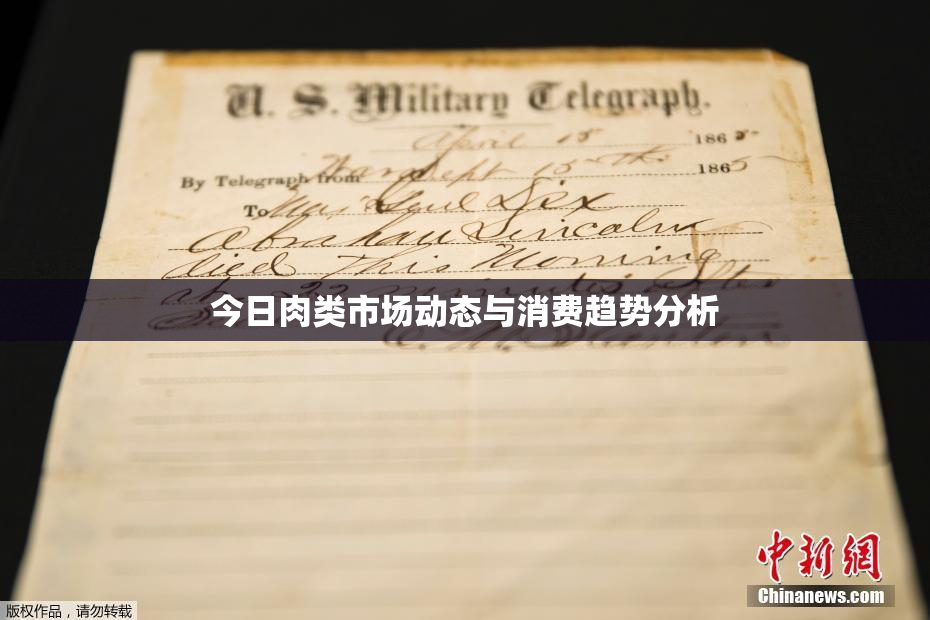 U. S. Military Telegraph.
April 15 1865
By Telegraph from War Dept 15th 1865
To Maj Genl Dix
Abraham Lincoln
died This Morning
at 22 minutes after
今日肉类市场动态与消费趋势分析
E. M. Stanton
中新網
Chinanews.com
版权作品，请勿转载